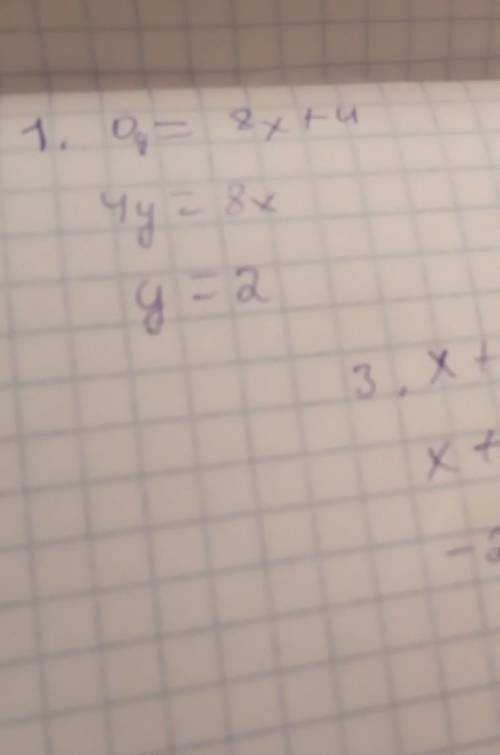 1. 0y = 8x + 4
4y = 8x
y = 2
3. x +
x +
- 2